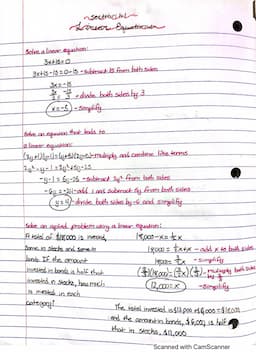 Section 1.2
Linear Equations
Solve a linear equation:
3x+15=0
3x+15-15=0-15 - subtract 15 from both sides
3x=-15
3x/3 = -15/3 - divide both sides by 3
x=-5 - simplify
Solve an equation that leads to
a linear equation:
- multiply and combine like terms
2y²-y-1=2y²+5y-25
-y-1=5y-25 - subtract 2y² from both sides
-6y=-24 - add 1 and subtract 5y from both sides
y=4 - divide both sides by -6 and simplify
Solve an applied problem using a linear equation:
A total of $18,000 is invested,
Some in stocks and some in
bonds. If the amount
invested in bonds is half that
invested in stocks, how much
is invested in each
category?
18,000-x=½x
18,000=½x+x - add x to both sides
18,000=3/2x - simplify
(2/3)18,000=(3/2x)(2/3) - multiply both sides by 2/3
12,000=x - simplify
The total invested is $12,000+$6,000=$18,000
and the amount in bonds, $6,000, is half
that in stocks, $12,000
Scanned with CamScanner